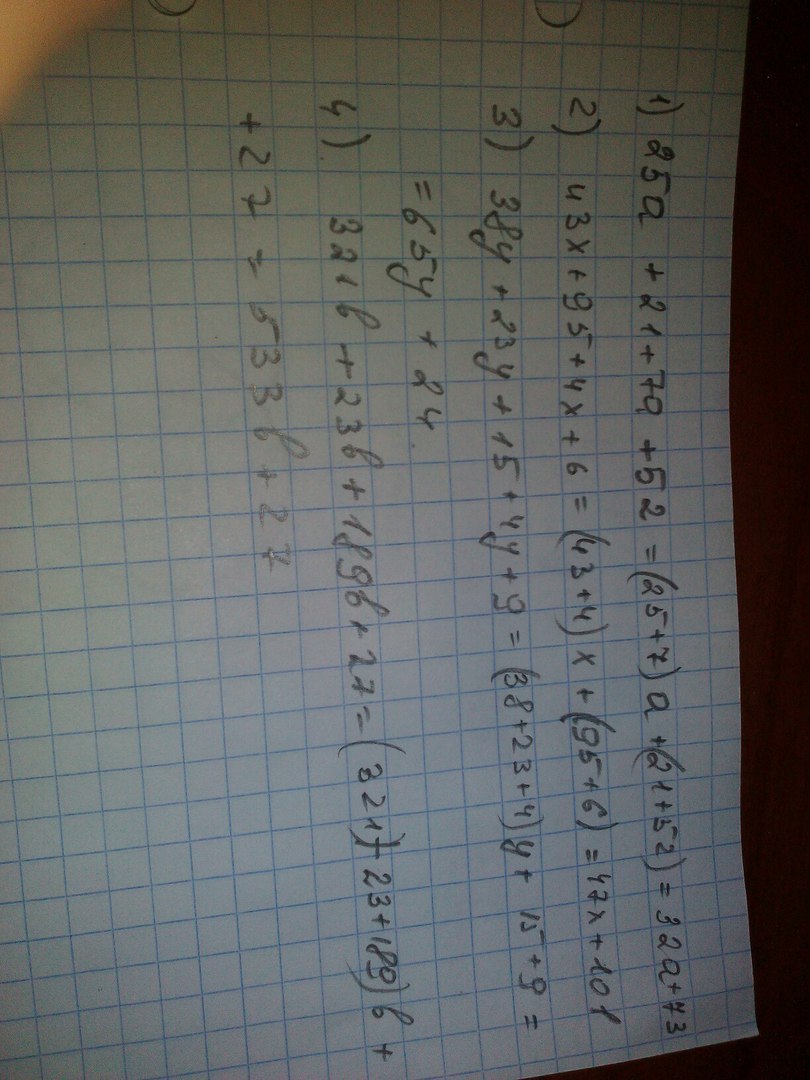 1) 25a + 21 + 7a + 52 = (25+7) a + (21+52) = 32a+73
2) 43x + 95 + 4x + 6 = (43+4) x + (95+6) = 47x + 101
3) 38y + 23y + 15 + 4y + 9 = (38+23+4) y + 15 + 9 =
= 65y + 24.
4) 321b + 23b + 189b + 27 = (321) + 23 + 189) b +
+ 27 = 533b + 27